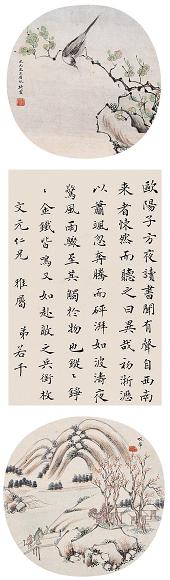 歐陽子方夜讀書聞有聲自西南
来者悚然而聽之曰異哉初淅瀝
以蕭颯忽奔騰而砰湃如波濤夜
驚風雨驟至其觸於物也鏦〻錚
〻金鐵皆鳴又如赴敵之兵銜枚
文元仁兄 雅屬 弟若千